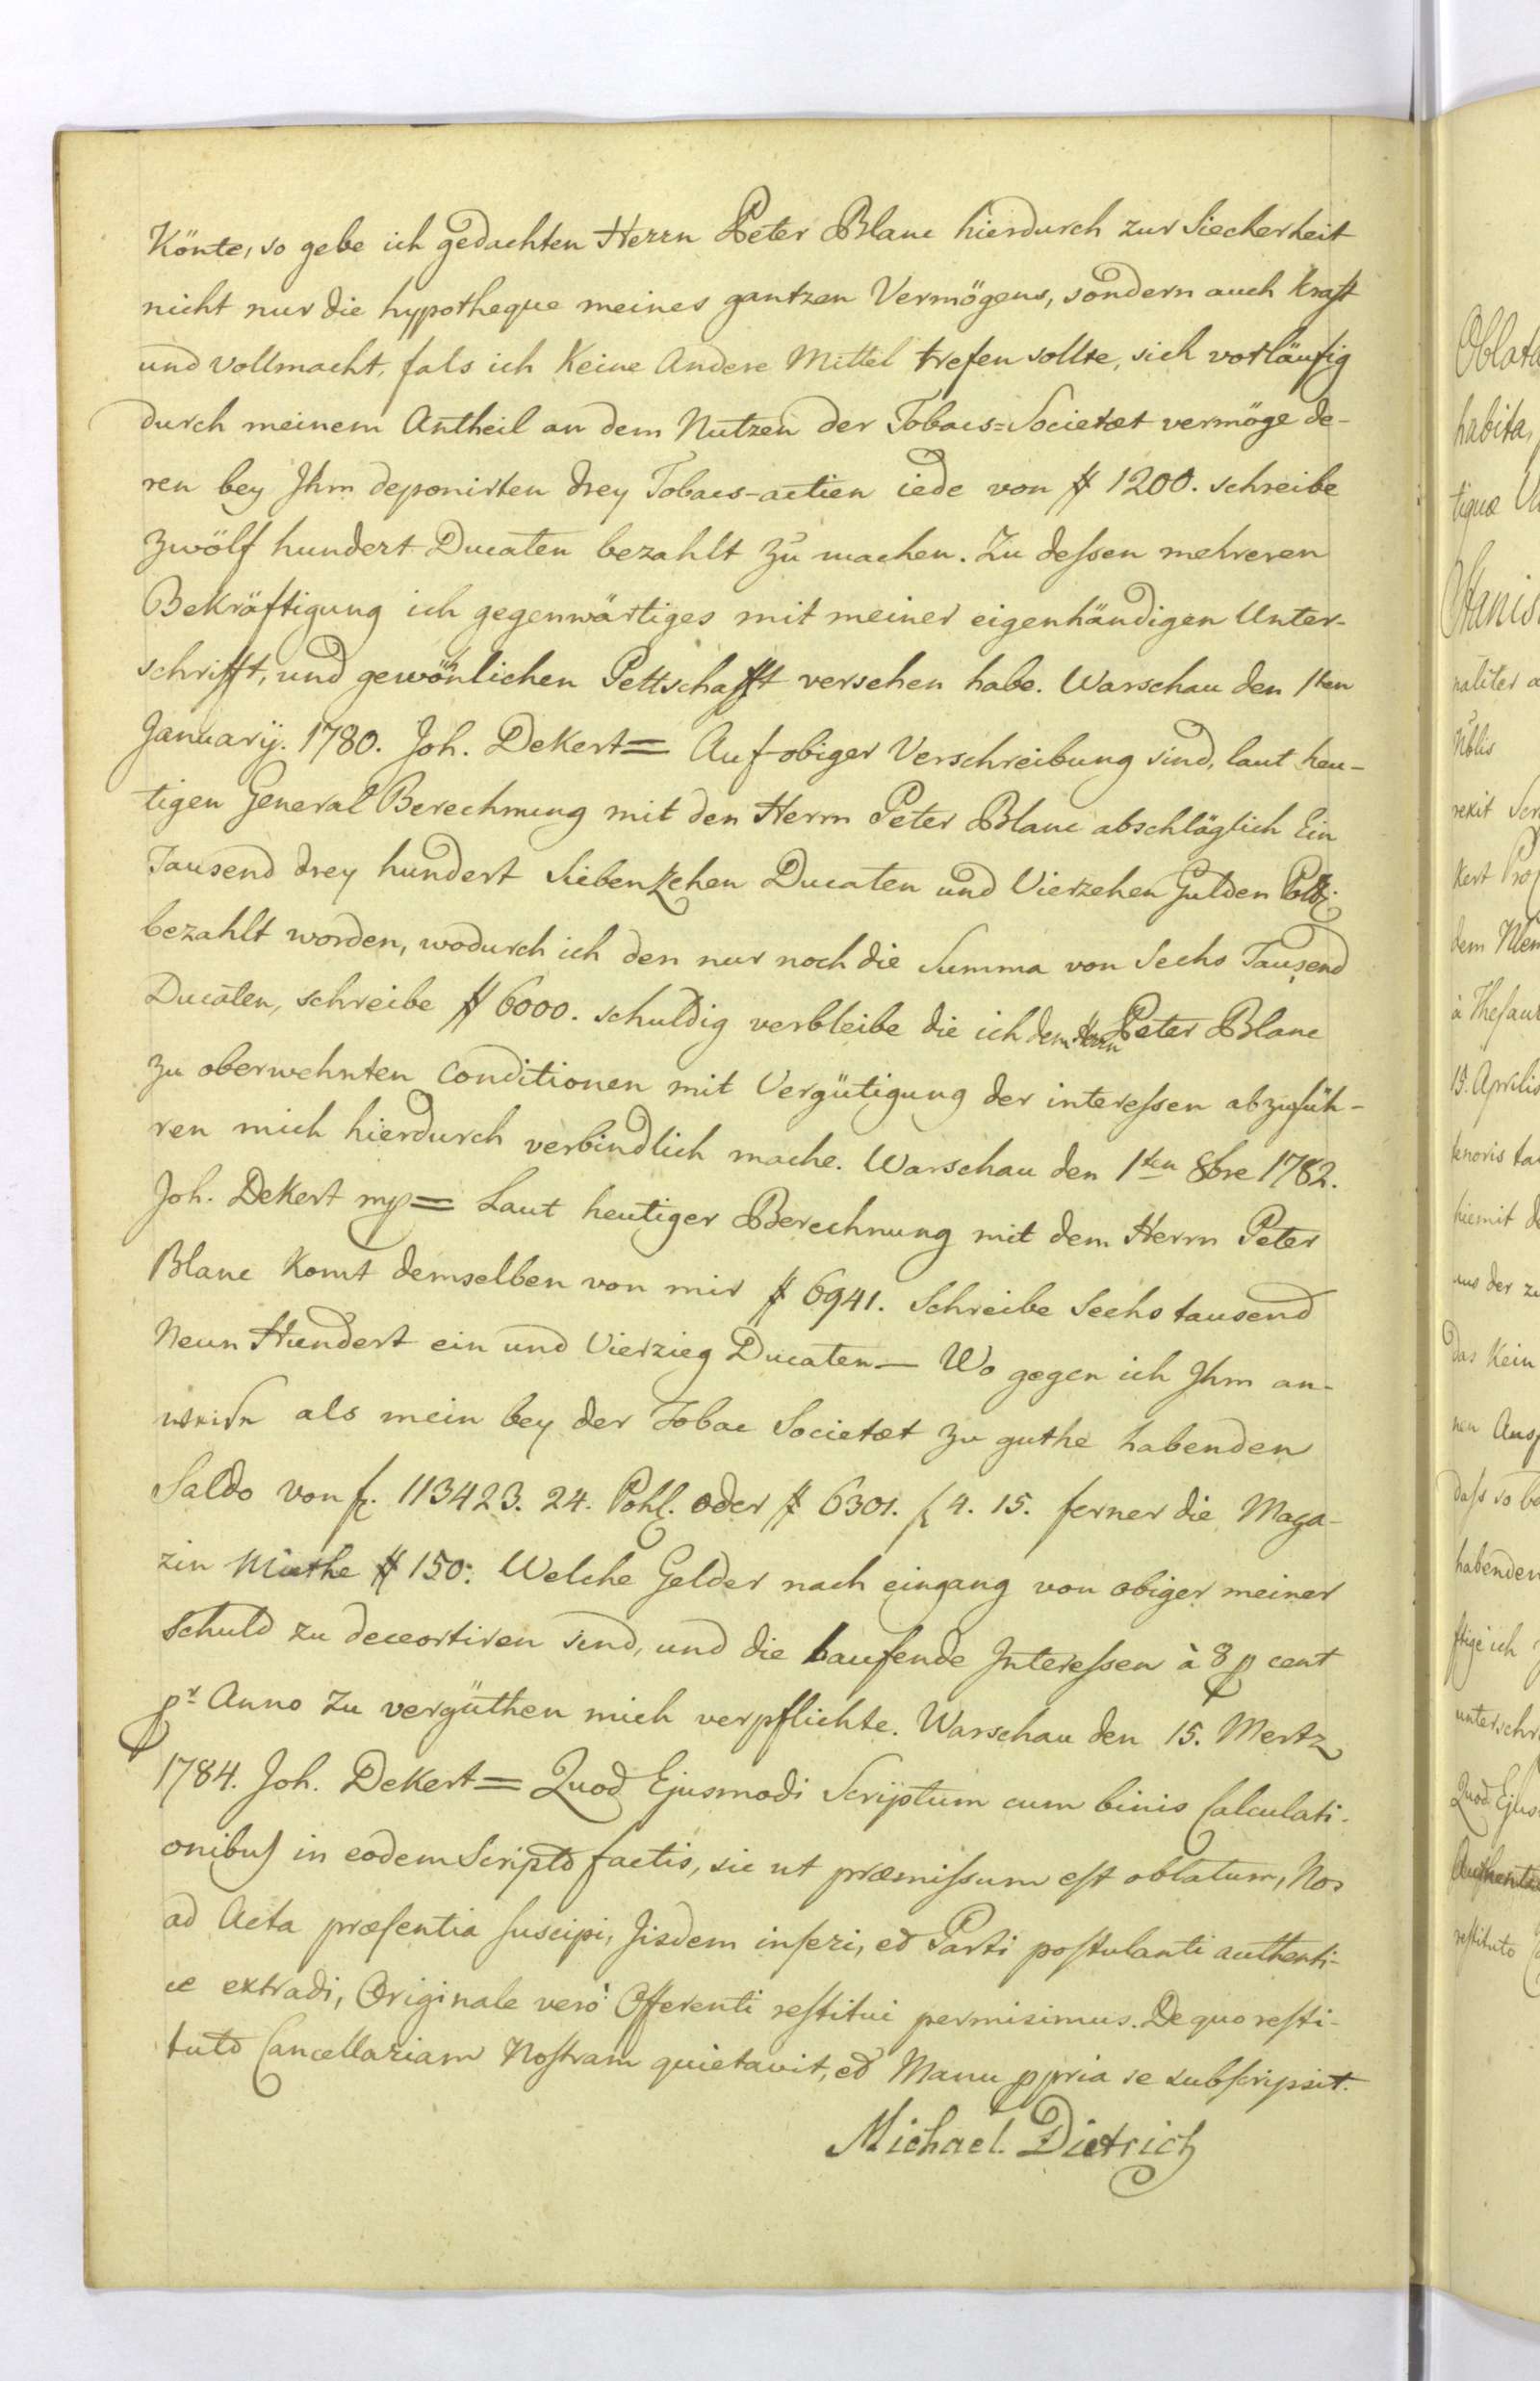 Könte, so gebe ich gedachten Herrn Peter Blanc hierdurch zur Siecherheit
nicht nur die hypotheque meines gantzen Vermögens, sondern auch Kraft
und vollmacht, fals ich Keine Andere Mittel trefen sollte, sich vorläufig
durch meinem Antheil an dem Nutzen der Tobacs=Societæt vermöge de-
ren bey Jhm deponirten drey Tobacs-actien iede von # 1200. schreibe
zwölf hundert Ducaten bezahlt zu machen. Zu deßen mehreren
Bekräftigung ich gegenwärtiges mit meiner eigenhändigen Unter-
schrifft, und gewönlichen Pettschafft versehen habe. Warschau den 1ten
Januarij. 1780. Joh. DeKert= Auf obiger Verschreibung sind, laut heu-
tigen General Berechnung mit den Herrn Peter Blanc abschläglich Ein
Tausend drey hundert Siebenzehen Ducaten und Vierzehen Gulden
bezahlt worden, wodurch ich den nur noch die Summa von Sechs Tausend
Ducaten, schreibe # 6000. schuldig verbleibe die ich dem Herrn Peter Blanc
zu oberwehnten Conditionen mit Vergütigung der intereßen abzufüh-
ren mich hierdurch verbindlich mache. Warschau den 1ten 8bre 1782.
Joh. DeKert mp= Laut heutiger Berechnung mit dem Herrn Peter
Blanc Komt demselben von mir # 6941. Schreibe Sechs tausend
Neun Hundert ein und Vierzieg Ducaten— Wo gegen ich Jhm an-
weise als mein bey der Tobac Societæt zu guthe habenden
Saldo von f. 113423. 24. Pohl. oder # 6301. f 4. 15. ferner die Maga-
zin Miethe # 150. Welche Gelder nach eingang von obiger meiner
Schuld zu decortiren sind, und die laufende Jntereßen à 8 p cent
pr Anno zu vergüthen mich verpflichte. Warschau den 15. Mertz
1784. Joh. DeKert= Quod Ejusmodi Scriptum cum binis Calculati-
onibus in eodem Scripto factis, sic ut præmissum est oblatum, Nos
ad Acta præsentia suscipi, Jisdem inseri, et Parti postulanti authenti-
ce extradi, Originale verò Offerenti restitui permisimus. De quo resti-
tuto Cancellariam Nostram quietavit, et Manu ppria se subscripsit.
Michael Dietrich
Oblata
habita,
tiquæ
Stanis
naliter a
Nblis
rexit
Kert
dem
à Thesau
15. Aprilis
tenoris ta
hiemit d
aus der zu
Das Kein
nen Aus
daß so be
habenden
ftige ich
unterschr
Quod Ejus
restituto